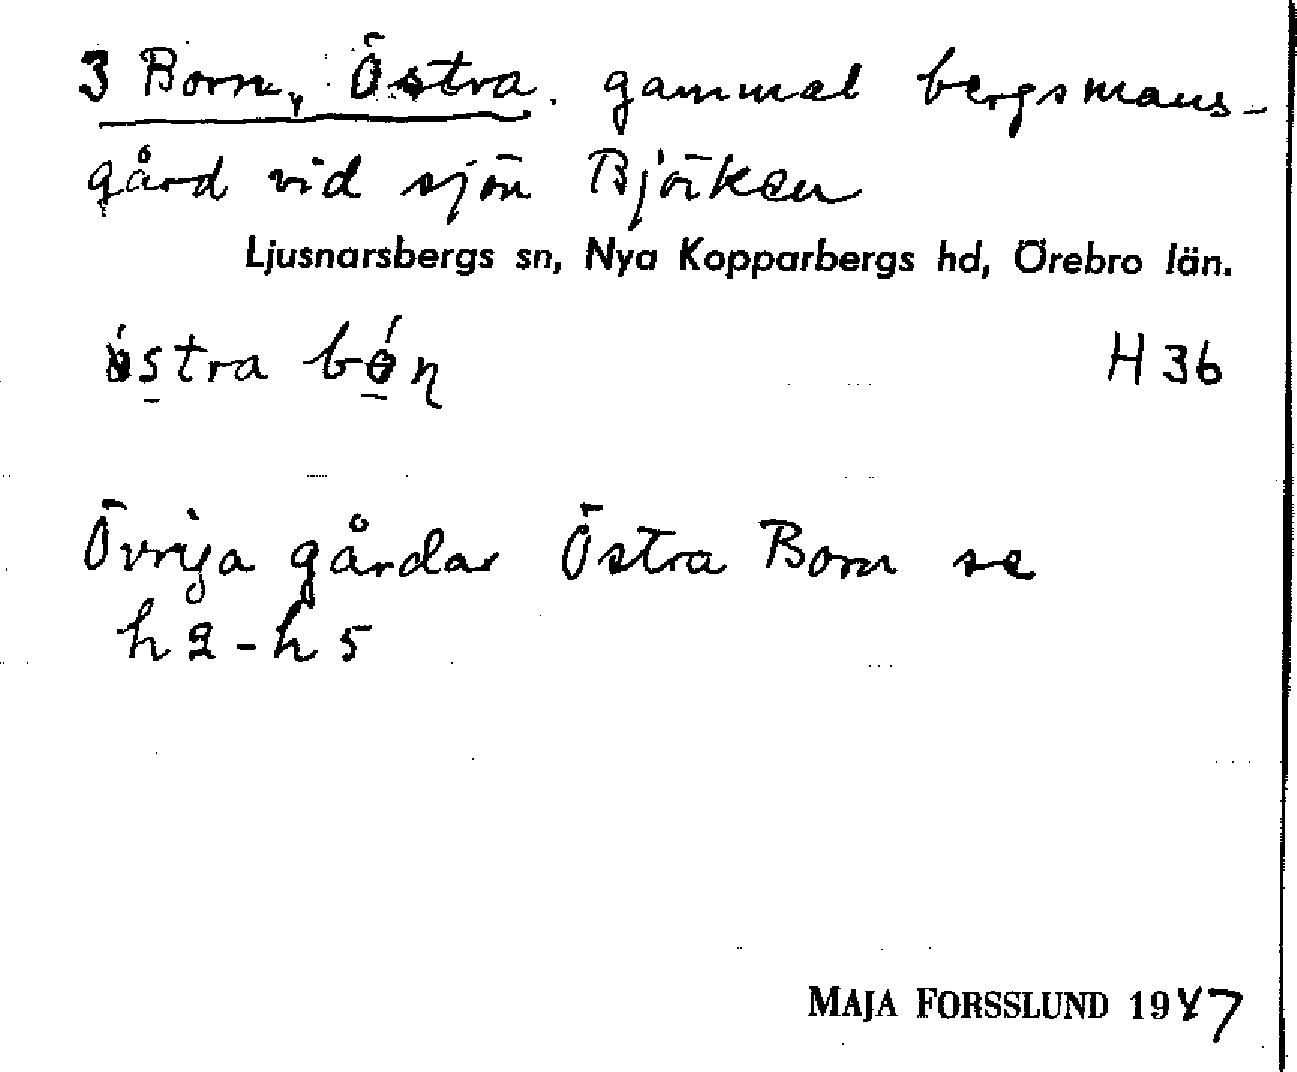 3 Born, Östra. gammal bergsmans-
gård vid sjön Björken
Ljusnarsbergs sn, Nya Kopparbergs hd, Örebro län.
östra bón H 36
Övriga gårdar Östra Born se
h2-h5
MAJA FORSSLUND 1947